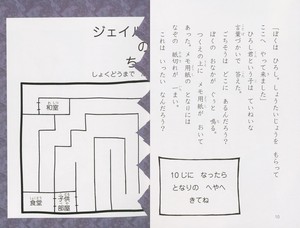 「ぼくは ひろし。しょうたいじょうを もらって
ここへ やって来ました」
ひろし君という子は ていねいな
言葉づかいで 答えた。
ごちそうは どこに あるんだろう？
ぼくの おなかが ぐぅと鳴る。
つくえの上に メモ用紙が おいて
あった。メモ用紙の となりには
なぞの 紙切れが 一まい。
これは いったい なんだろう？
10じに なったら
となりの へやへ
きてね
ジェイ
の
ち
しょくどうまで
和室
食堂
子供
部屋